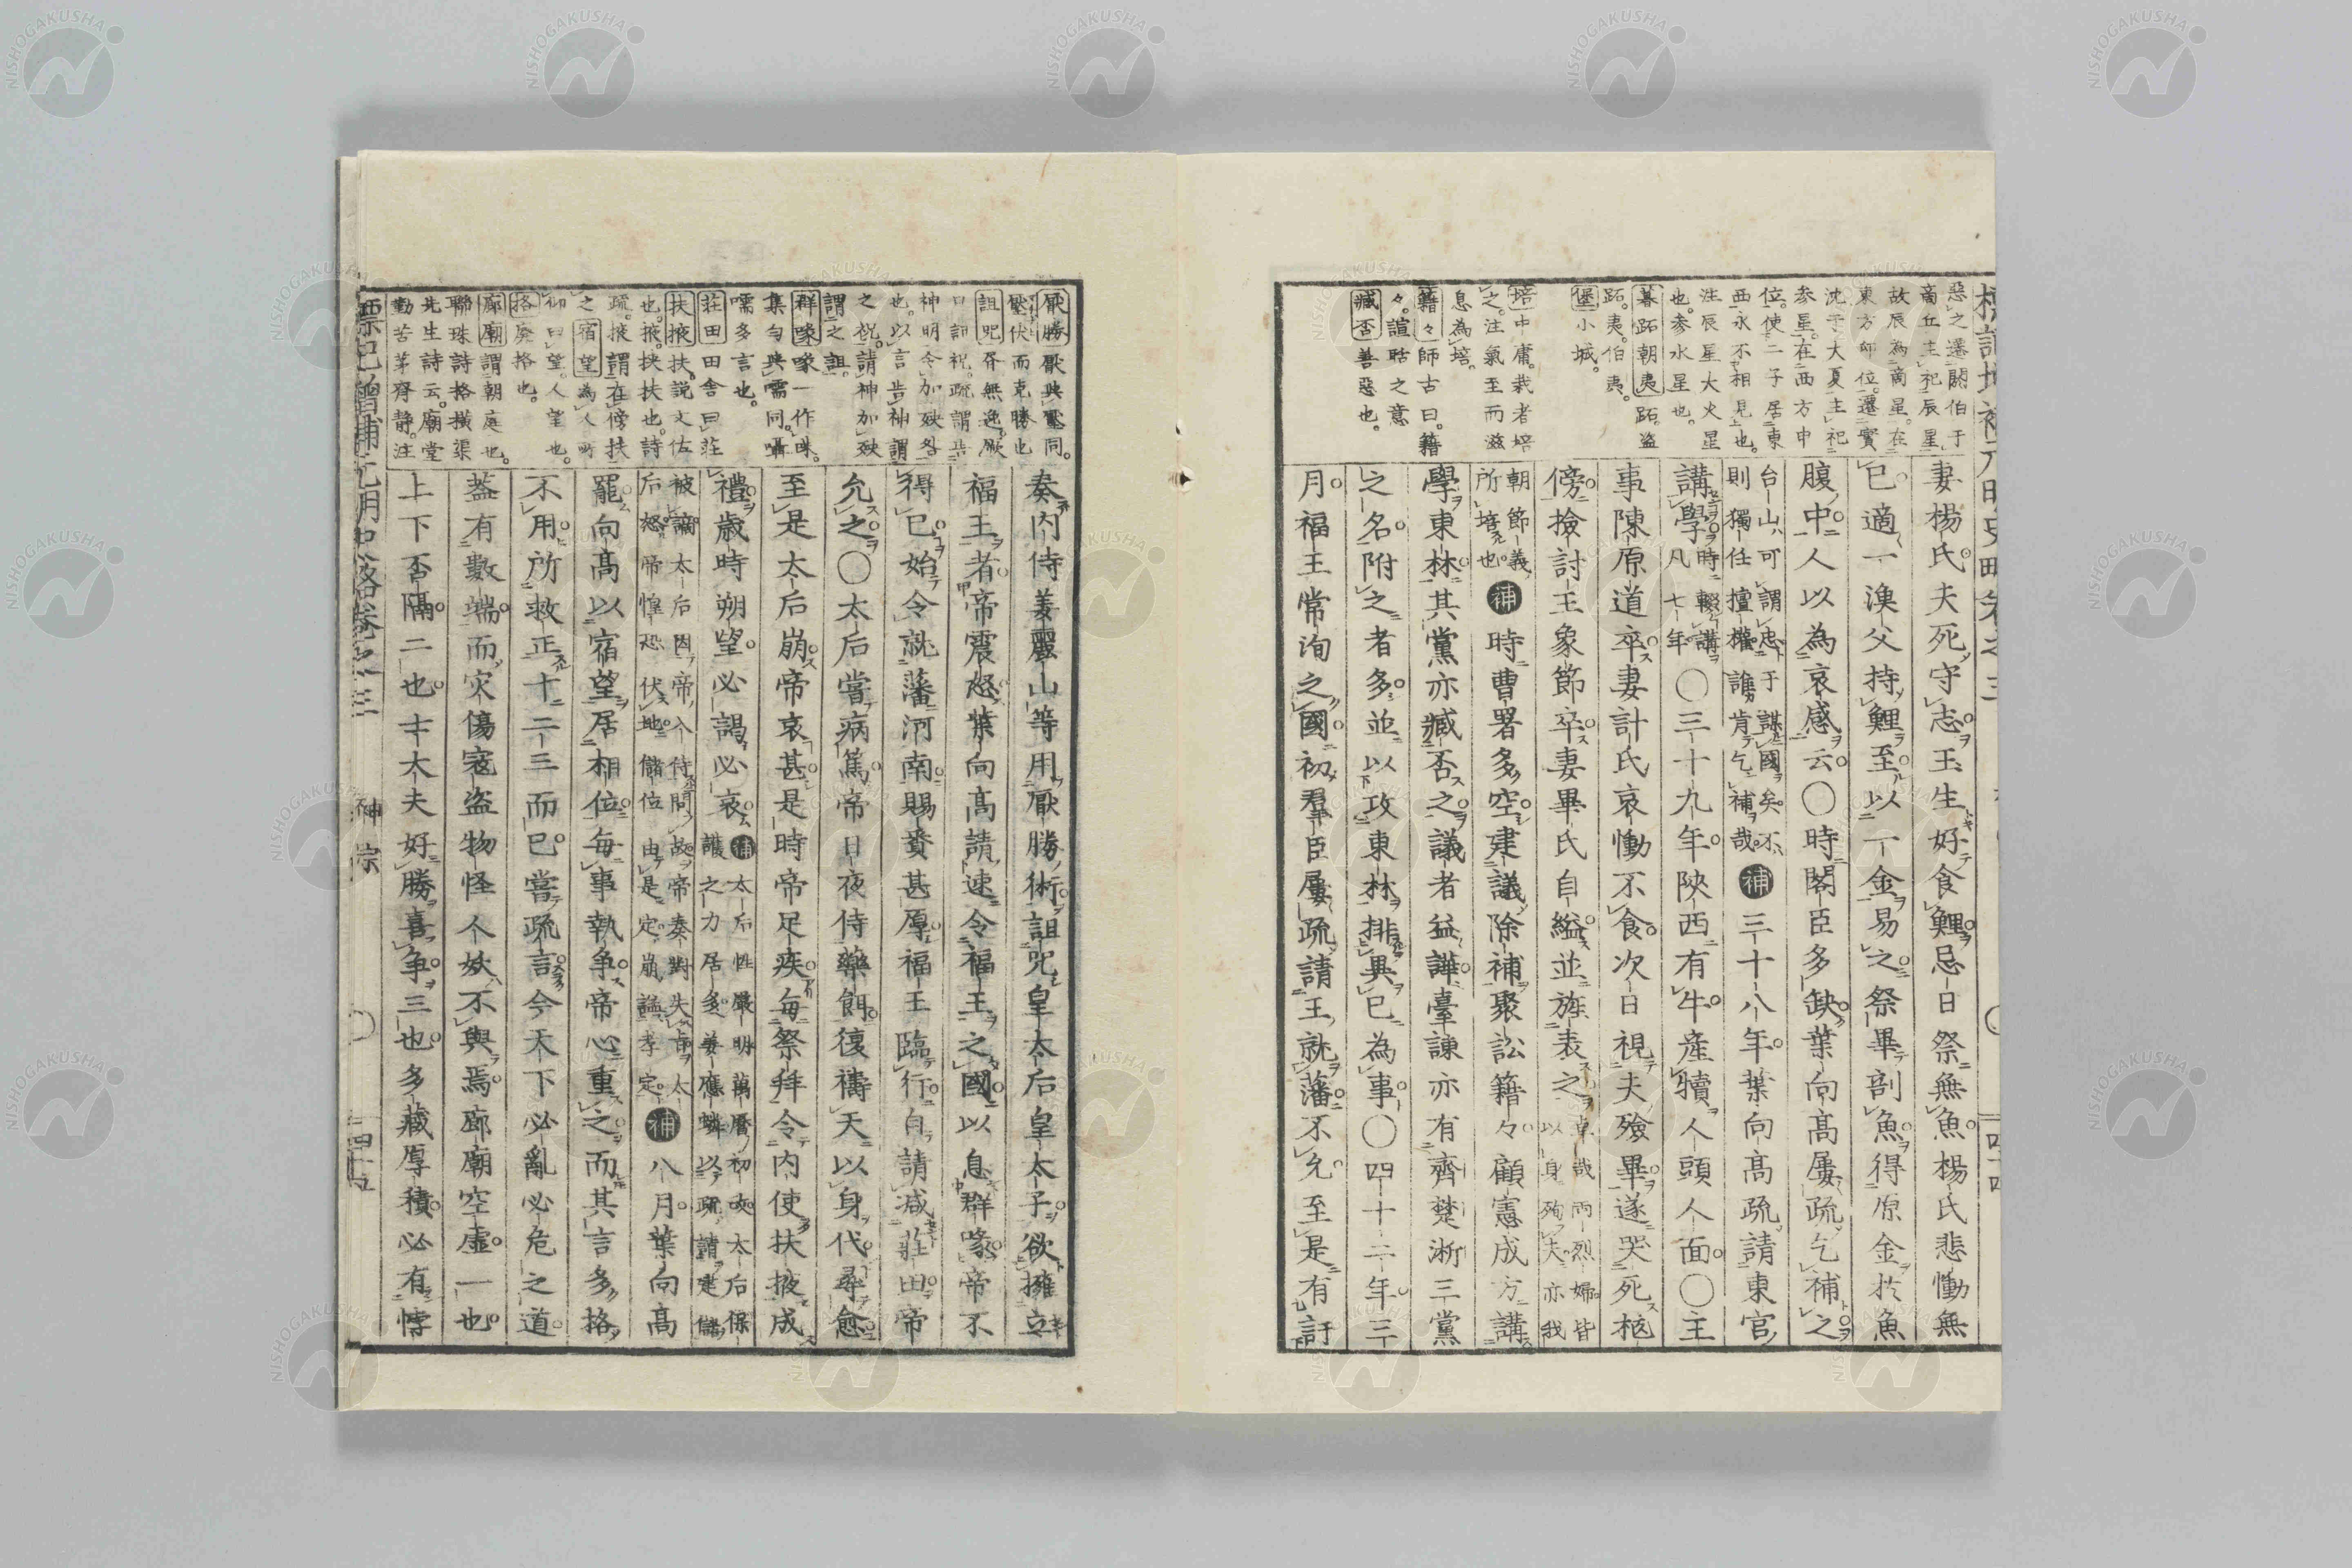 惡之遷閼伯于
商丘主祀辰星
故辰為商星在
東方卯位遷實
沈于大夏主祀
参星在西方申
位使二子居東
西永不相見也
注辰星大火星
也参水星也
慕跖朝夷跖盗
跖夷伯夷
堡小城
培中庸栽者培
之注氣至而滋
息為培
籍々師古曰籍
々諠聒之意
臧否善惡也
妻楊氏夫死守志王生好食鯉忌日祭無魚楊氏悲慟無
已適一漁父持鯉至以一金易之祭畢剖魚得原金於魚
腹中人以為哀感云〇時閣臣多缺葉向髙屢疏乞補之
台山可謂忠于謀國矣不
則獨任擅權誰肯乞補哉
補三十八年葉向髙疏請東宮
講學時輟講
凡七年
〇三十九年陝西有牛産犢人頭人面〇主
事陳原道卒妻計氏哀慟不食次日視夫殮畢遂哭死柩
傍撿討王象節卒妻畢氏自縊並旌表之
卓哉両烈婦皆
以身殉夫亦我
朝節義
所培也
補時曹署多空建議除補聚訟籍々顧憲成方講
學東林其黨亦臧否之議者益譁臺諌亦有齊楚浙三黨
之名附之者多並以攻東林排異已為事〇四十二年三
月福王常洵之國初羣臣屢疏請王就藩不允至是有訐
厭勝厭與壓同
壓伏而克勝也
詛呪呑無逸厥
口詛祝疏謂告
神明令加殃咎
也以言告神謂
之祝請神加殃
謂之詛
群喙喙一作咮
集句與需同囁
嚅多言也
荘田田舎曰荘
扶掖扶説文佐
也掖挟扶也詩
疏掖謂在傍扶
之宿望為人所
仰曰望人望也
格廃格也
廊廟謂朝庭也
聯珠詩格横渠
先生詩云廟堂
勤苦茅齊静注
奏内侍姜麗山等用厭勝術詛呪皇太后皇太子欲擁立
福王者帝震怒葉向髙請速令福王之國以息群喙帝不
得已始令就藩河南賜賚甚厚福王臨行自請減莊田帝
允之〇太后嘗病篤帝日夜侍藥餌復禱天以身代尋愈
至是太后崩帝哀甚是時帝足疾毎祭拜令内使扶掖成
禮歳時朔望必謁必哀
補太后性嚴明萬暦初政太后保
護之力居多姜應麟以疏請建儲
被謫太后因帝入侍問故帝奏對失旨太
后怒帝惶恐伏地儲位由是定崩謚孝定
補八月葉向髙
罷向髙以宿望居相位毎事執争帝心重之而其言多挌
不用所救正十二三而已嘗疏言今天下必亂必危之道
蓋有數端而灾傷寇盗物怪人妖不與焉廊廟空虚一也
上下否隔二也士大夫好勝喜争三也多藏厚積必有悖
神宗